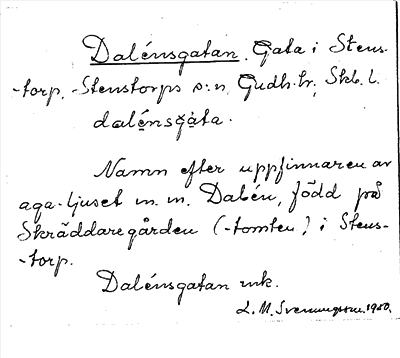 Dalénsgatan. Gata i Stens-
-torp, Stenstorps s:n, Gudh. hr, Skb. l.
dalénsgata.
Namn efter uppfinnaren av
aga-ljuset m. m. Dalén, född på
Skräddaregården (-tomten) i Stens-
-torp.
Dalénsgatan mk.
L. M. Svenungsson 1980.